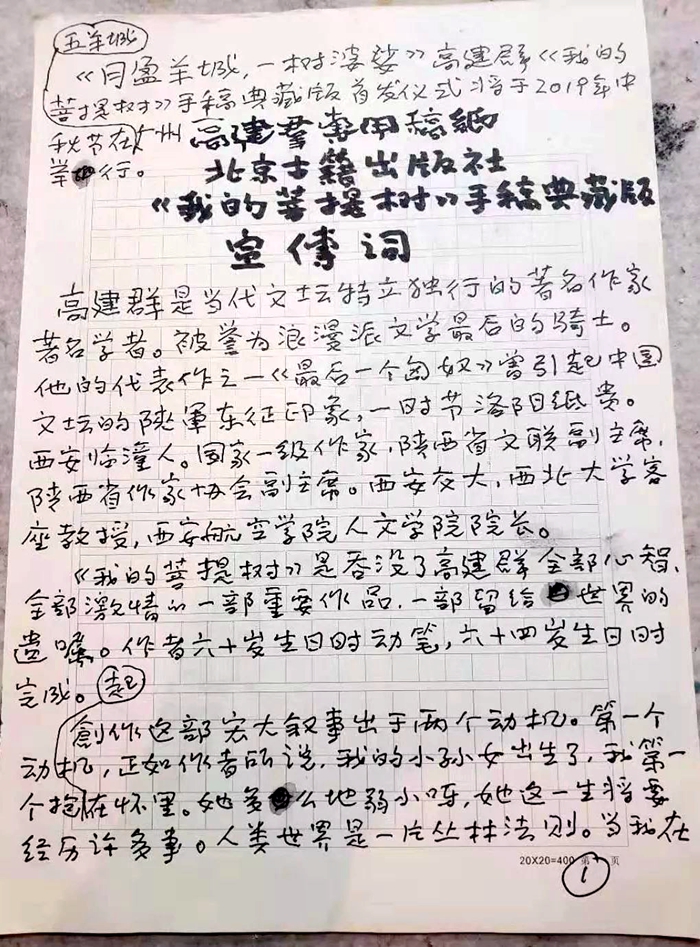 五羊城
《月盈羊城，一树婆娑》高建群《我的
菩提树》手稿典藏版首发仪式将于2019年中
秋节在广州
举行。
高建群专用稿纸
北京古籍出版社
《我的菩提树》手稿典藏版
宣传词
高建群是当代文坛特立独行的著名作家
著名学者。被誉为浪漫派文学最后的骑士。
他的代表作之一《最后一个匈奴》曾引起中国
文坛的陕军东征印象，一时节洛阳纸贵。
西安临潼人。国家一级作家，陕西省文联副主席，
陕西省作家协会副主席。西安交大，西北大学客
座教授，西安航空学院人文学院院长。
《我的菩提树》是吞没了高建群全部心智、
全部激情的一部重要作品，一部留给世界的
遗嘱。作者六十岁生日时动笔，六十四岁生日时
完成。
起
創作这部宏大叙事出于两个动机。第一个
动机，正如作者所说，我的小孙女出生了，我第一
个抱在怀里。她多么地弱小呀，她这一生将要
经历许多事。人类世界是一片丛林法则。当我在
20X20=400 第 页
1